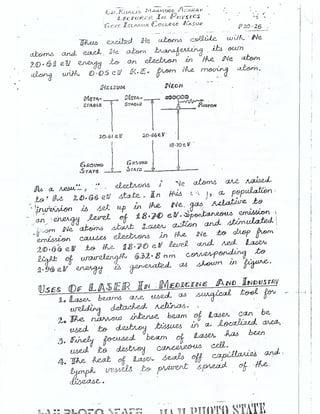 CH. KHALID MAHMOOD ASGHAR
LECTURER IN PHYSICS
GOVT. ISLAMIA COLLEGE KASUR
P20-26
Thus excited He atoms collide with Ne
atoms and each He atom transferring its own
20.61 eV energy to an electron in the Ne atom
along with 0.05 eV K.E. from the moving atom.
HELIUM NEON
META-
STABLE
META-
STABLE
PHOTON
20.61 eV 20.66 eV
18.70 eV
GROUND
STATE
GROUND
STATE
As a electrons Ne atoms are raised
to the 20.66 eV state. In this , a population
inversion is set up in the Ne gas relative to
an energy level of 18.70 eV. Spontaneous emission
from Ne atoms start Laser action and stimulated
emission causes electrons in the Ne to drop from
20.66 eV to the 18.70 eV level and red Laser
light of wavelength 632.8 nm corresponding to
1.96 eV energy is generated as shown in figure.
USES OF LASER IN MEDICINE AND INDUSTRY
1. Laser beams are used as surgical tool for
welding detached retinas.
2. The narrow intense beam of Laser can be
used to destroy tissues in a localized area.
3. Finely focused beam of Laser has been
used to destroy cancerous cell.
4. The heat of Laser seals off capillaries and
lymph vessels to prevent spread of the
disease.
HAJI PHOTO STATE